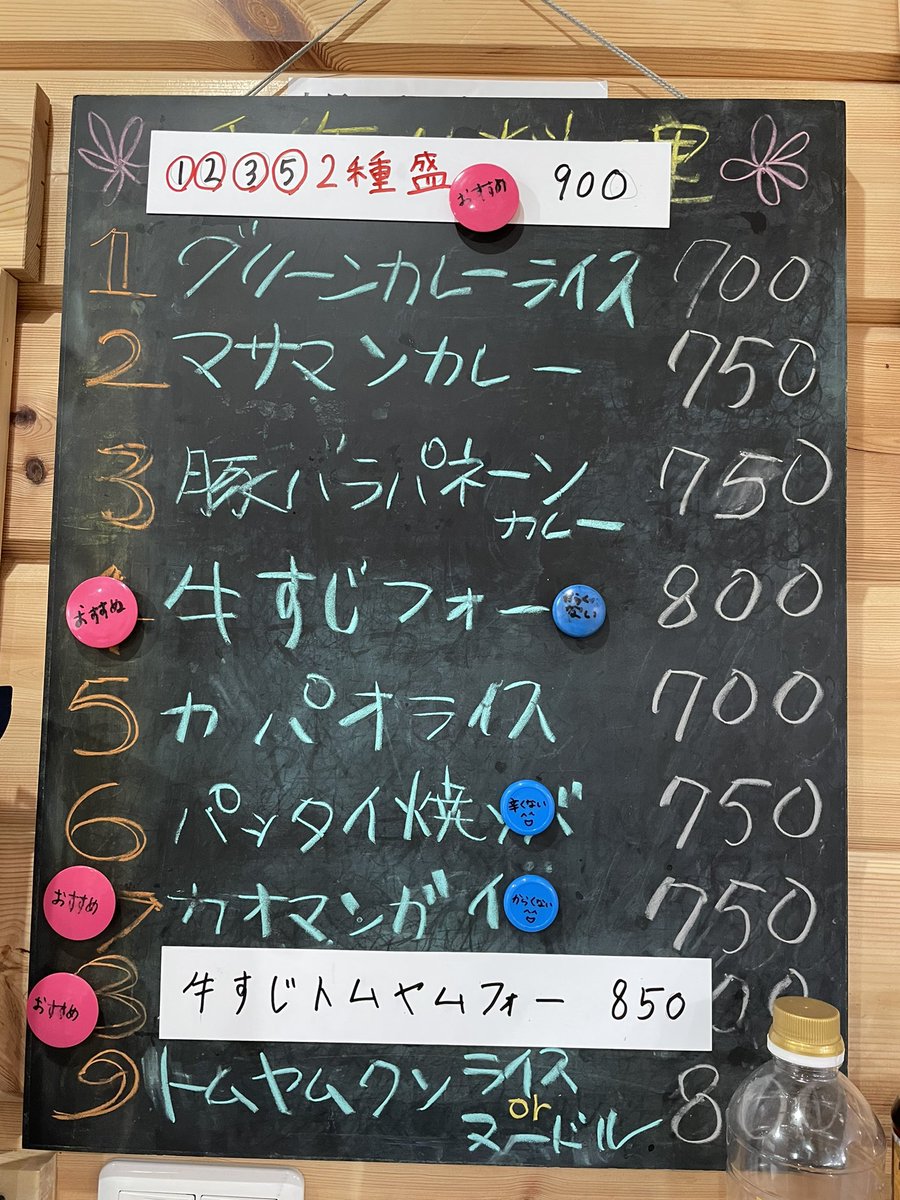 ①②③⑤2種盛 おすすめ 900
1 グリーンカレーライス 700
2 マサマンカレー 750
3 豚バラパネーン 750
カレー
おすすめ 牛すじフォー からくない 800
5 カパオライス 700
6 パッタイ焼 辛くない 750
おすすめ 7 カオマンガイ からくない 750
おすすめ 8 牛すじトムヤムフォー 850
9 トムヤムクン ライス 8
or
ヌードル